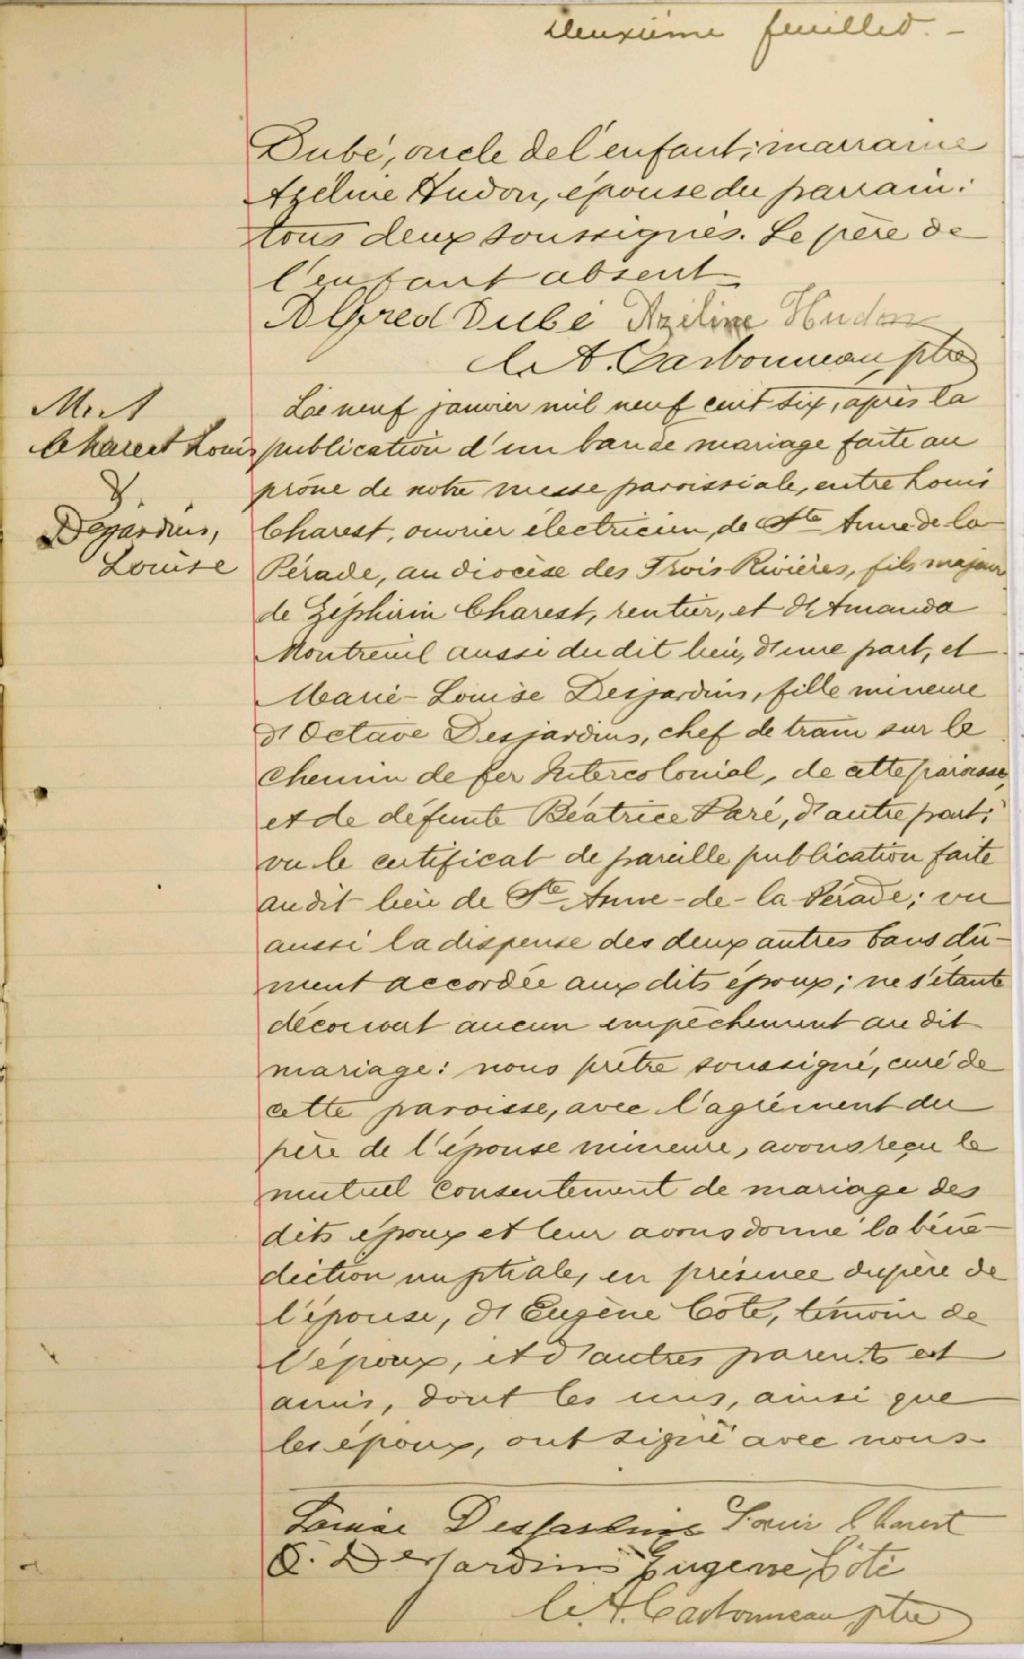 Deuxième feuillet. -
Dubé, oncle de l'enfant; marraine
Azéline Hudon, épouse du parrain:
tous deux soussignés. Le père de
l'enfant absent
Alfred Dubé Azeline Hudon
C. A. Carbonneau, ptre
M. 1
Charest Louis
&
Desjardins,
Louise
Le neuf janvier mil neuf cent six, après la
publication d'un ban de mariage faite au
prône de notre messe paroissiale, entre Louis
Charest, ouvrier électricien, de Ste Anne de la
Pérade, au diocèse des Trois Rivières, fils majeur
de Zéphirin Charest, rentier, et d'Amanda
Montreuil aussi du dit lieu, d'une part, et
Marie-Louise Desjardins, fille mineure
d'Octave Desjardins, chef de train sur le
chemin de fer Intercolonial, de cette paroisse,
et de défunte Béatrice Paré, d'autre part;
vu le certificat de pareille publication faite
au dit lieu de Ste Anne-de-la-Pérade; vu
aussi la dispense des deux autres bans dû-
ment accordée aux dits époux; ne s'étant
découvert aucun empêchement au dit
mariage: nous prêtre soussigné, curé de
cette paroisse, avec l'agrément du
père de l'épouse mineure, avons reçu le
mutuel consentement de mariage des
dits époux et leur avons donné la béné-
diction nuptiale, en présence du père de
l'épouse, d'Eugène Côté, témoin de
l'époux, et d'autres parents et
amis, dont les uns, ainsi que
les époux, ont signé avec nous-
Louise Desjardins Louis Charest
O. Desjardins Eugene Côté
C. A. Carbonneau ptre